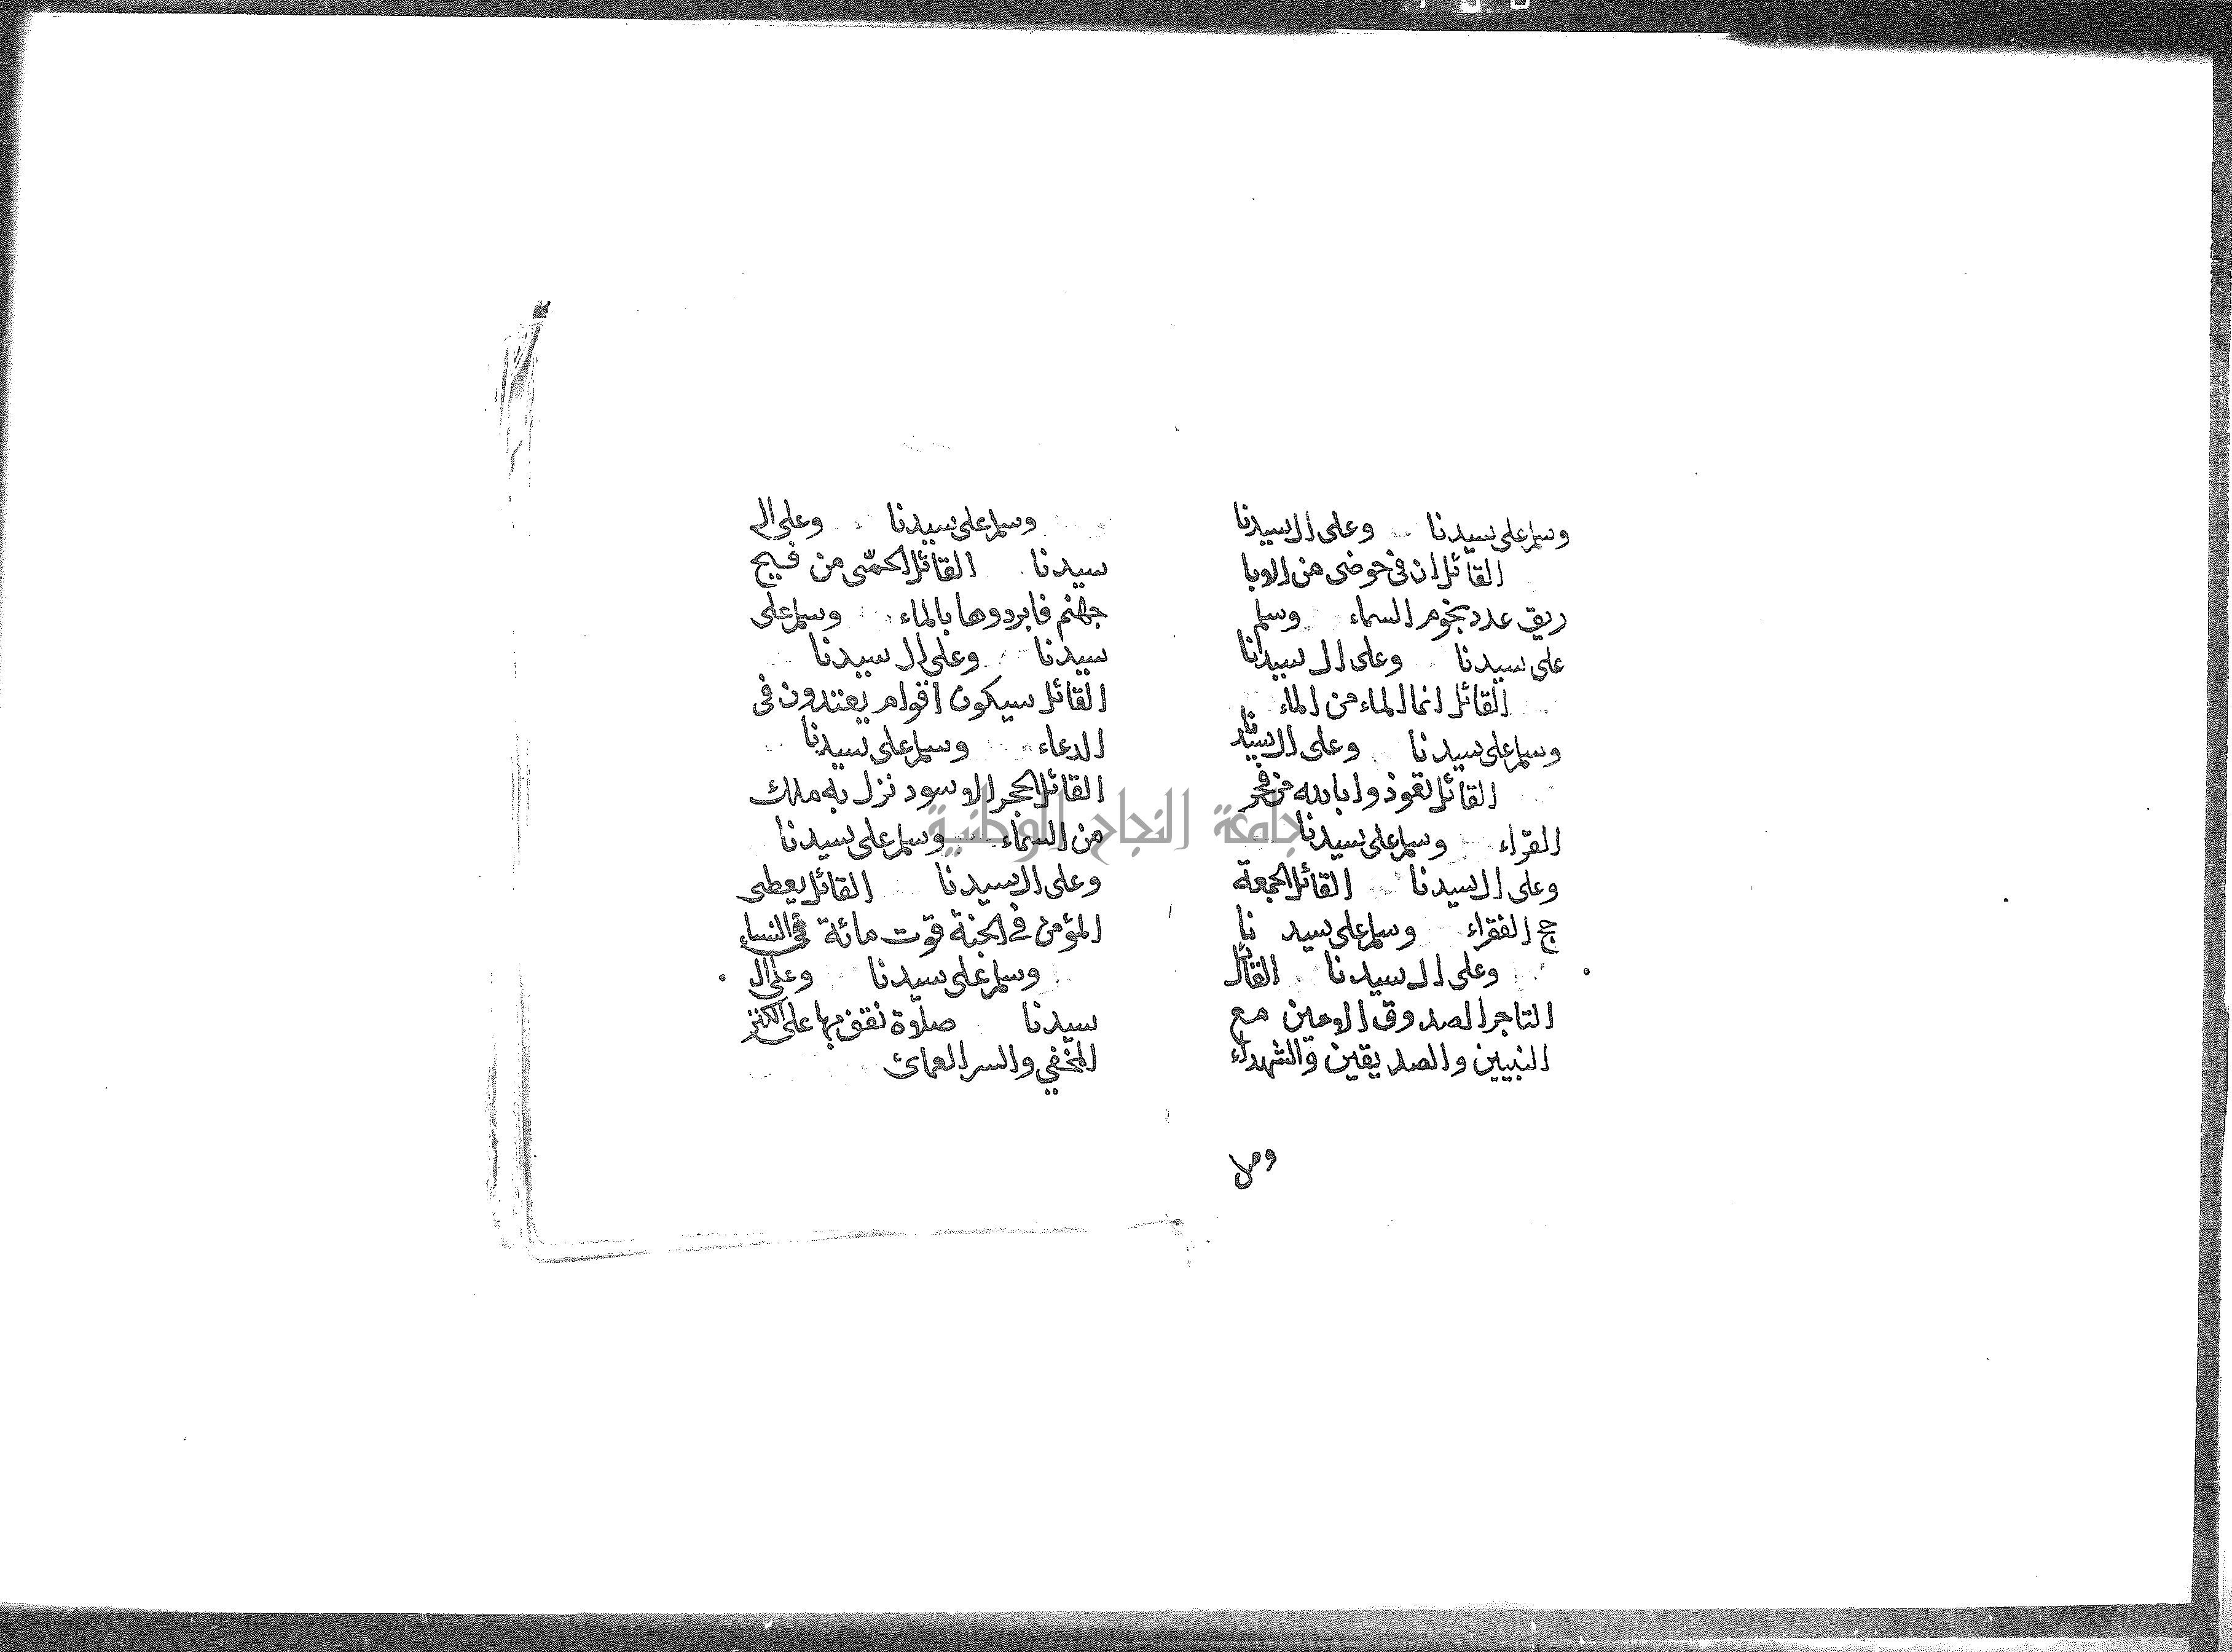 وسلم على سيدنا وعلى ال سيدنا
القائل ان في حوضي من الابا
ريق عدد نجوم السماء وسلم
على سيدنا وعلى ال سيدنا
القائل انما الماء من الماء
وسلم على سيدنا وعلى ال سيدنا
القائل تعوذوا بالله من فخر
القراء وسلم على سيدنا
وعلى ال سيدنا القائل الجمعة
حج الفقراء وسلم على سيد نا
وعلى ال سيدنا القائل
التاجر الصدوق الامين مع
النبيين والصديقين والشهداء
وصل
وسلم على سيدنا وعلى ال
سيدنا القائل الحمّى من فيح
جهنم فابردوها بالماء وسلم على
سيدنا وعلى ال سيدنا
القائل سيكون اقوام يعتدون في
الدعاء وسلم على سيدنا
القائل الحجر الاسود نزل به ملك
من السماء وسلم على سيدنا
وعلى ال سيدنا القائل يعطى
المؤمن في الجنة قوت مائة في النساء
وسلم على سيدنا وعلى ال
سيدنا صلاة نقف بها على الكنز
المخفي والسر العمائ
جامعة النجاح الوطنية